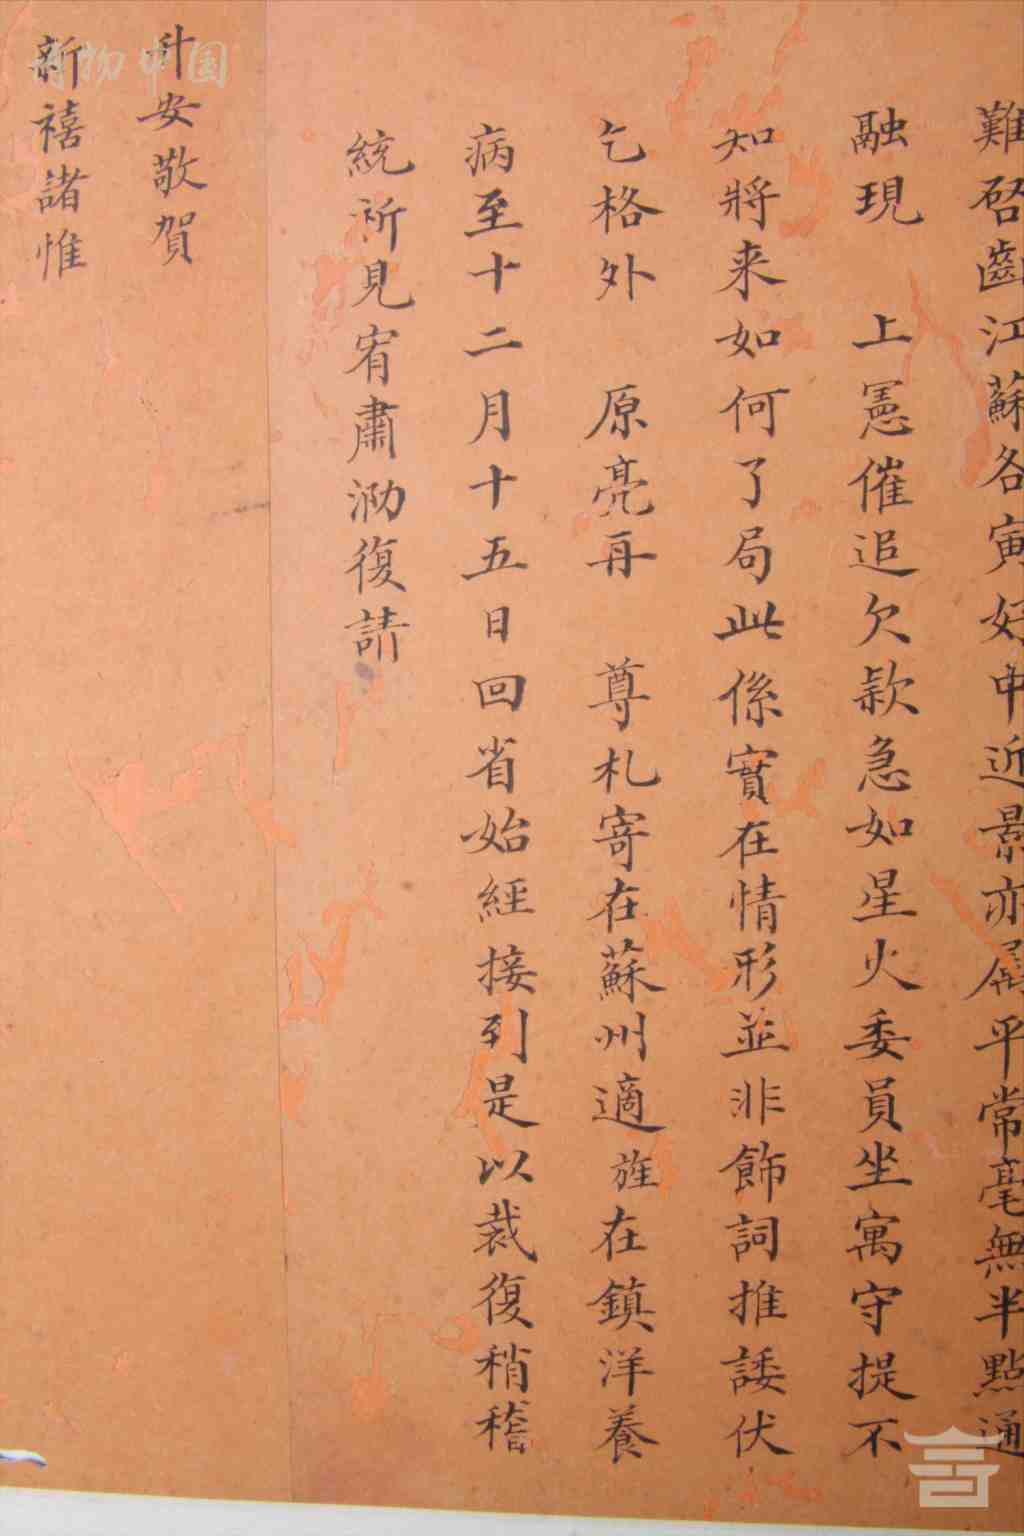 難啓齒江蘇各寅好中近景亦屬平常毫無半點通
融現 上憲催追欠款急如星火委員坐寓守提不
知將来如何了局此係實在情形並非飾詞推諉伏
乞格外 原亮再 尊札寄在蘇州適旌在鎮洋養
病至十二月十五日回省始經接到是以裁復稍稽
統祈見宥肅泐復請
升安敬賀
新禧諸惟
博物中国